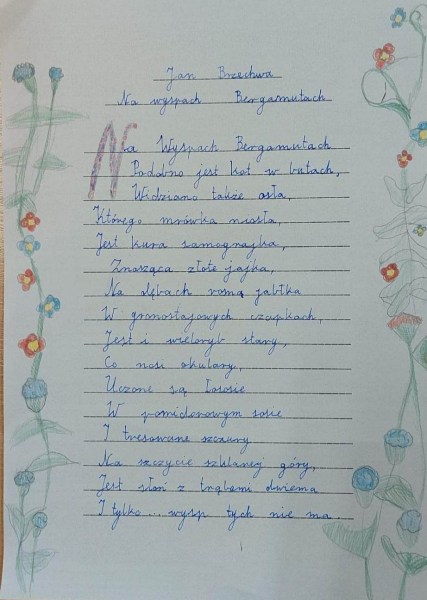 Jan Brzechwa
Na wyspach Bergamutach
Na Wyspach Bergamutach
Podobno jest kot w butach,
Widziano także osła,
Którego mrówka niosła,
Jest kura samograjka,
Znosząca złote jajka,
Na dębach rosną jabłka
W gronostajowych czapkach,
Jest i wieloryb stary,
Co nosi okulary,
Uczone są łososie
W pomidorowym sosie
I tresowane szczury
Na szczycie szklanej góry,
Jest słoń z trąbami dwiema
I tylko... wysp tych nie ma.